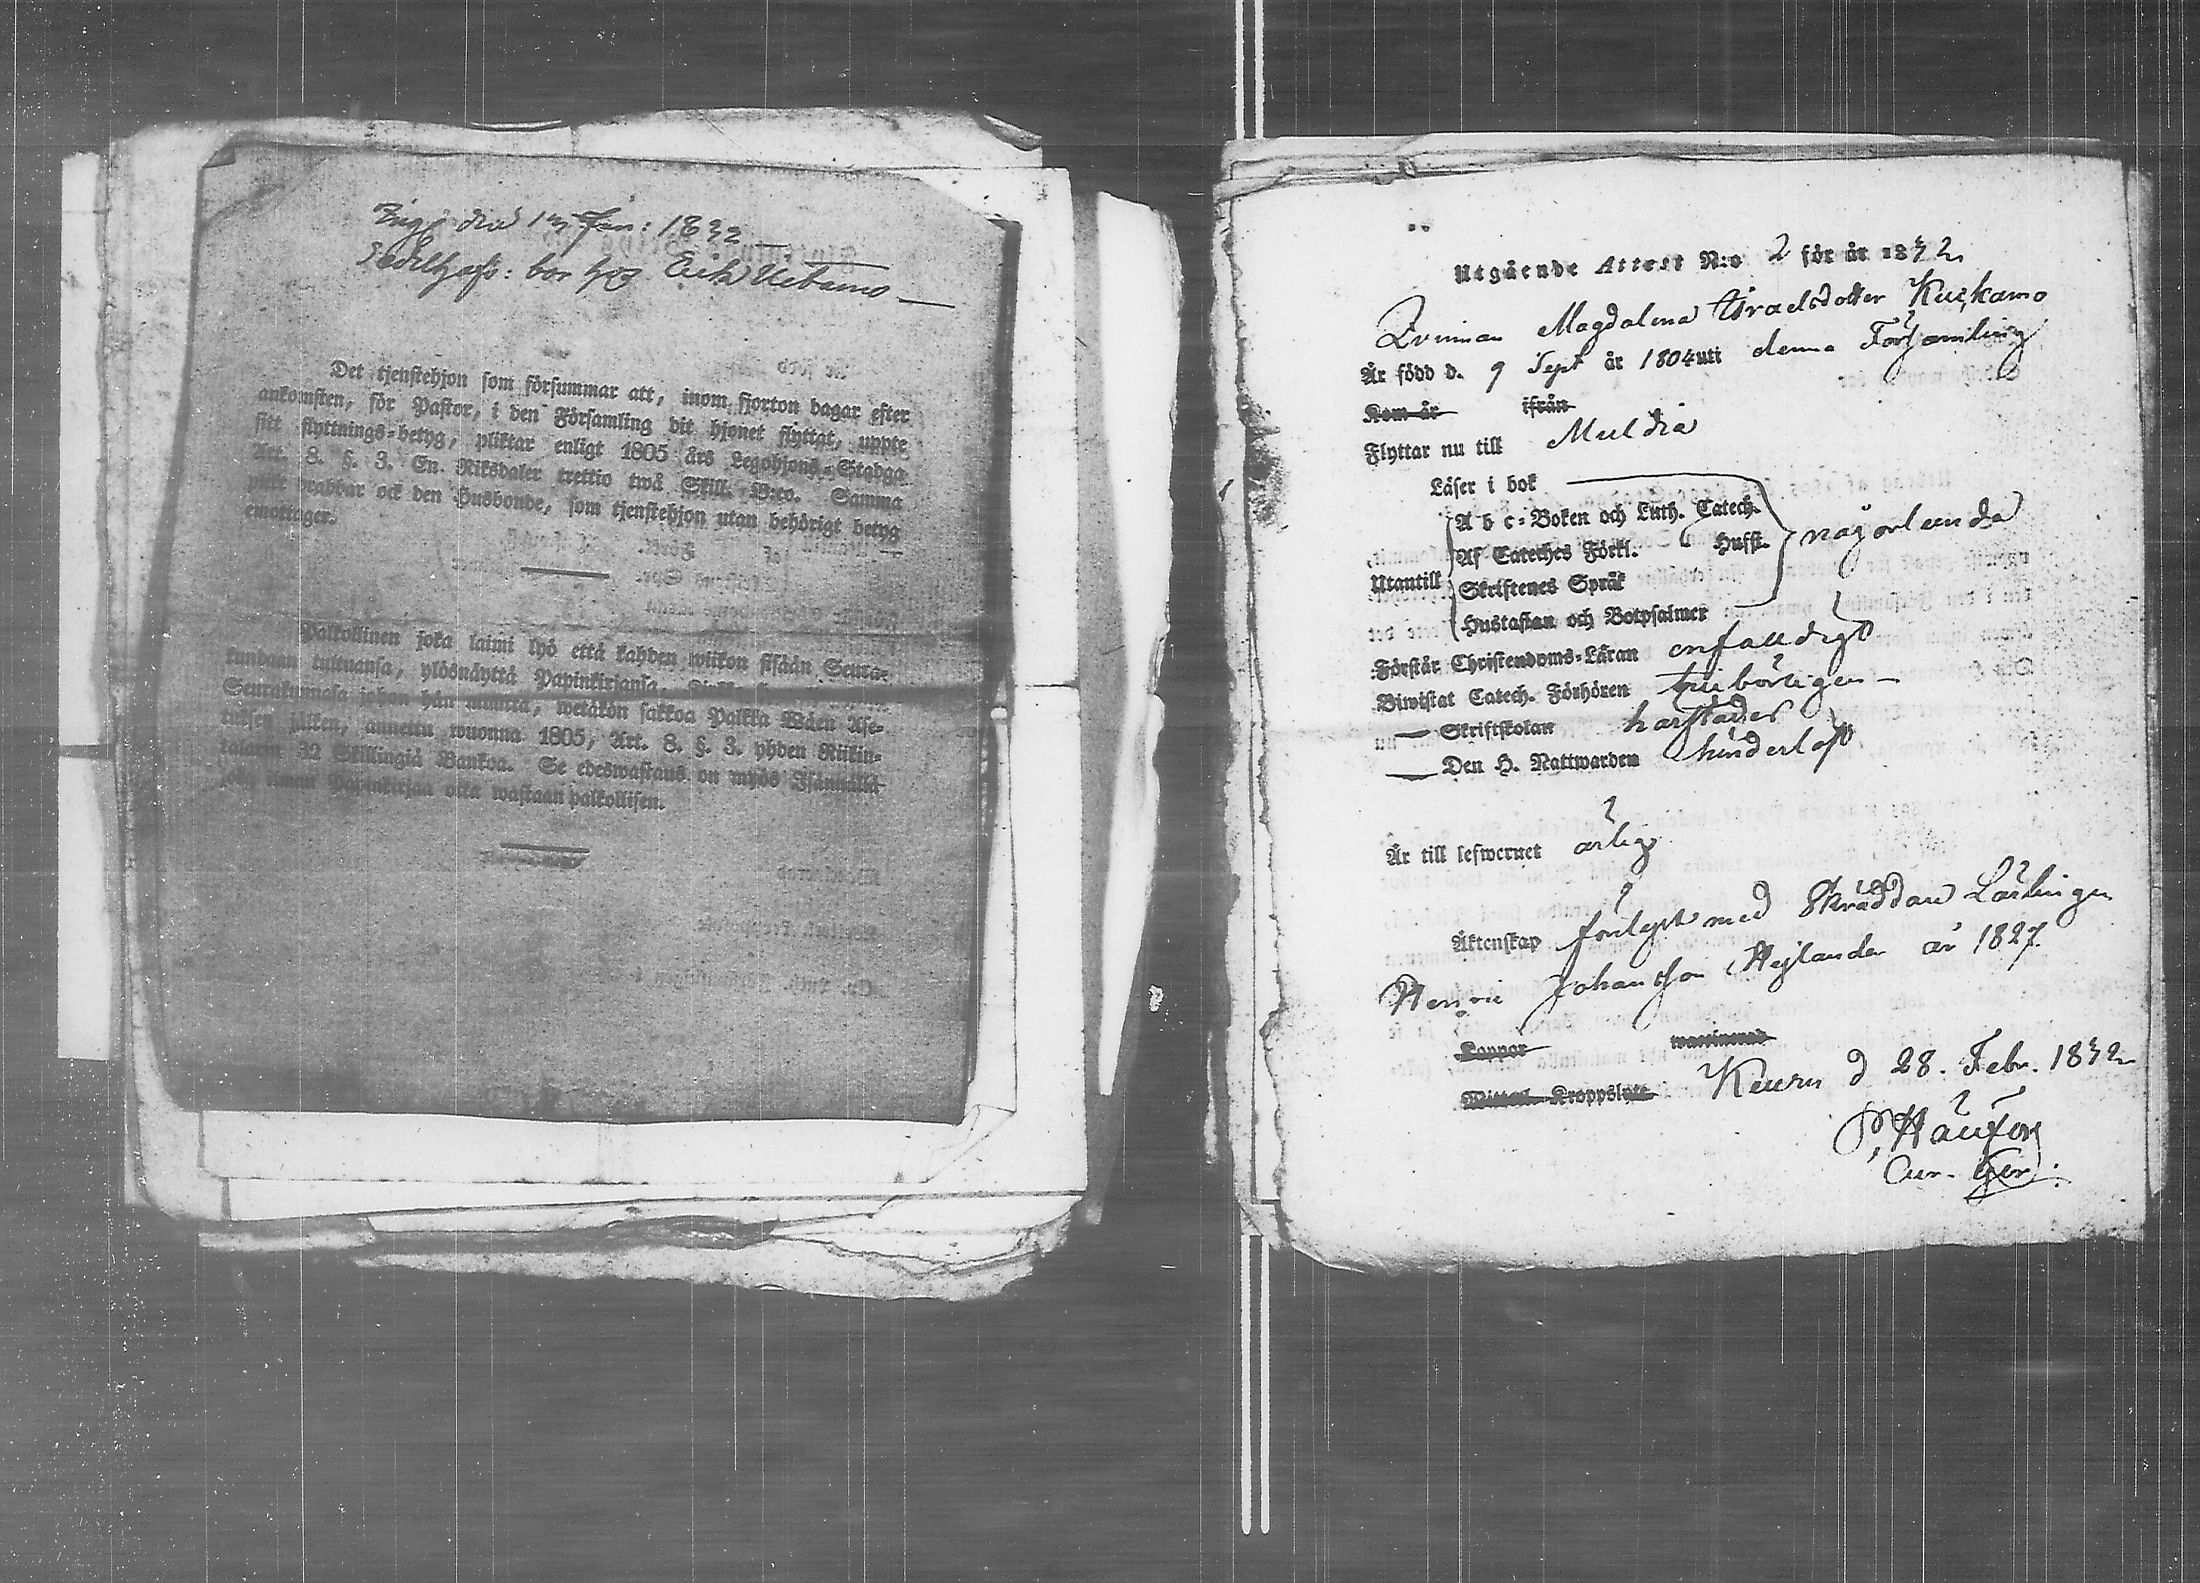 den 13 Jan: 1832
bor hos Erik Uebamo
Det tjenstehjon som försummar att, inom fjorton dagar efter
ankomsten, för Pastor, i den Församling dit hjonet flyttat, uppte
sitt flyttnings-betyg, pliktar enligt 1805 års Legohjons-Stadga
Art. 8. §. 3. En Riksdaler trettio twå Skill. B:co. Samma
plikt drabbar ock den Husbonde, som tjenstehjon utan behörigt betyg
emottager.
Palkollinen joka laimi lyö että kahden wiikon sisään Seura-
kundaan tultuansa, ylösnäyttä Papinkirjansa,
Seurakunnasa johon hän muutta, wetäkön sakkoa Palkka Wäen Ase-
tuksen jälken, annettu wuonna 1805, Art. 8. §. 3. yhden Riikin-
talarin 32 Skillingiä Bankoa. Se edeswastaus on myös Isännällä
joka ilman Papinkirjaa otta wastaan palkollisen.
Utgående Attest N:o 2 för år 1832
Qvinnan Magdalena Israelsdotter Kuckamo
Är född d. 9 Sept år 1804 uti denna Församling
Kom år ifrån
Flyttar nu till Muldia
Läser i bok
A b c-Boken och Luth. Catech.
Af Cateches Förkl. Husst. någorlunda
Utantill Skriftenes Språk
Hustaflan och Botpsalmer
Förstår Christendoms-Läran enfalldigt
Biwistat Catech. Förhören tillbörligen
— Skriftskolan
— Den H. Nattwarden hinderlöst
Är till lefwernet ärlig
Äktenskap förlyst med Skräddare Lärlingen
Henric Johansson Hejlander år 1827.
Koppor waccinerad
Wittal. Kroppslyte Keuru d 28. Febr. 1832